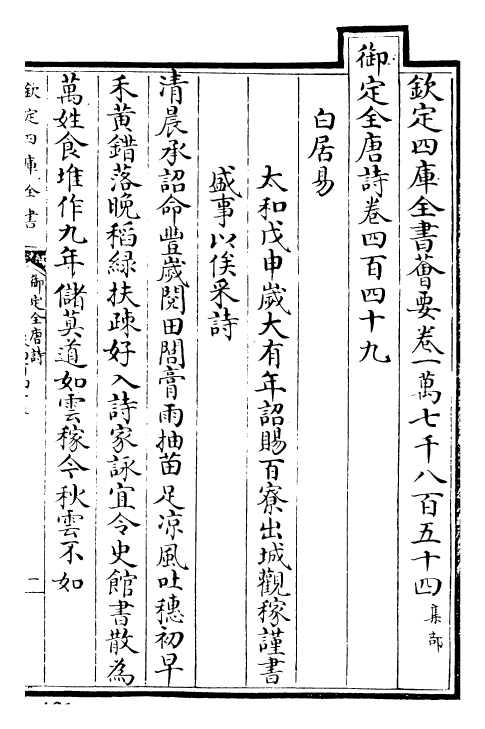 欽定四庫全書薈要卷一萬七千八百五十四 集部
御定全唐詩卷四百四十九
白居易
太和戊申歲大有年詔賜百寮出城觀稼謹書
盛事以俟采詩
清晨承詔命豐歲閱田閭膏雨抽苗足凉風吐穗初早
禾黄錯落晚稻綠扶疎好入詩家詠宜令史館書散為
萬姓食堆作九年儲莫道如雲稼今秋雲不如
欽定四庫全書
御定全唐詩